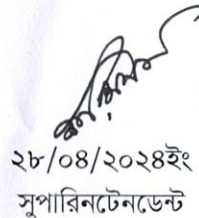 ২৮/০৪/২০২৪ইং
সুপারিনটেনডেন্ট